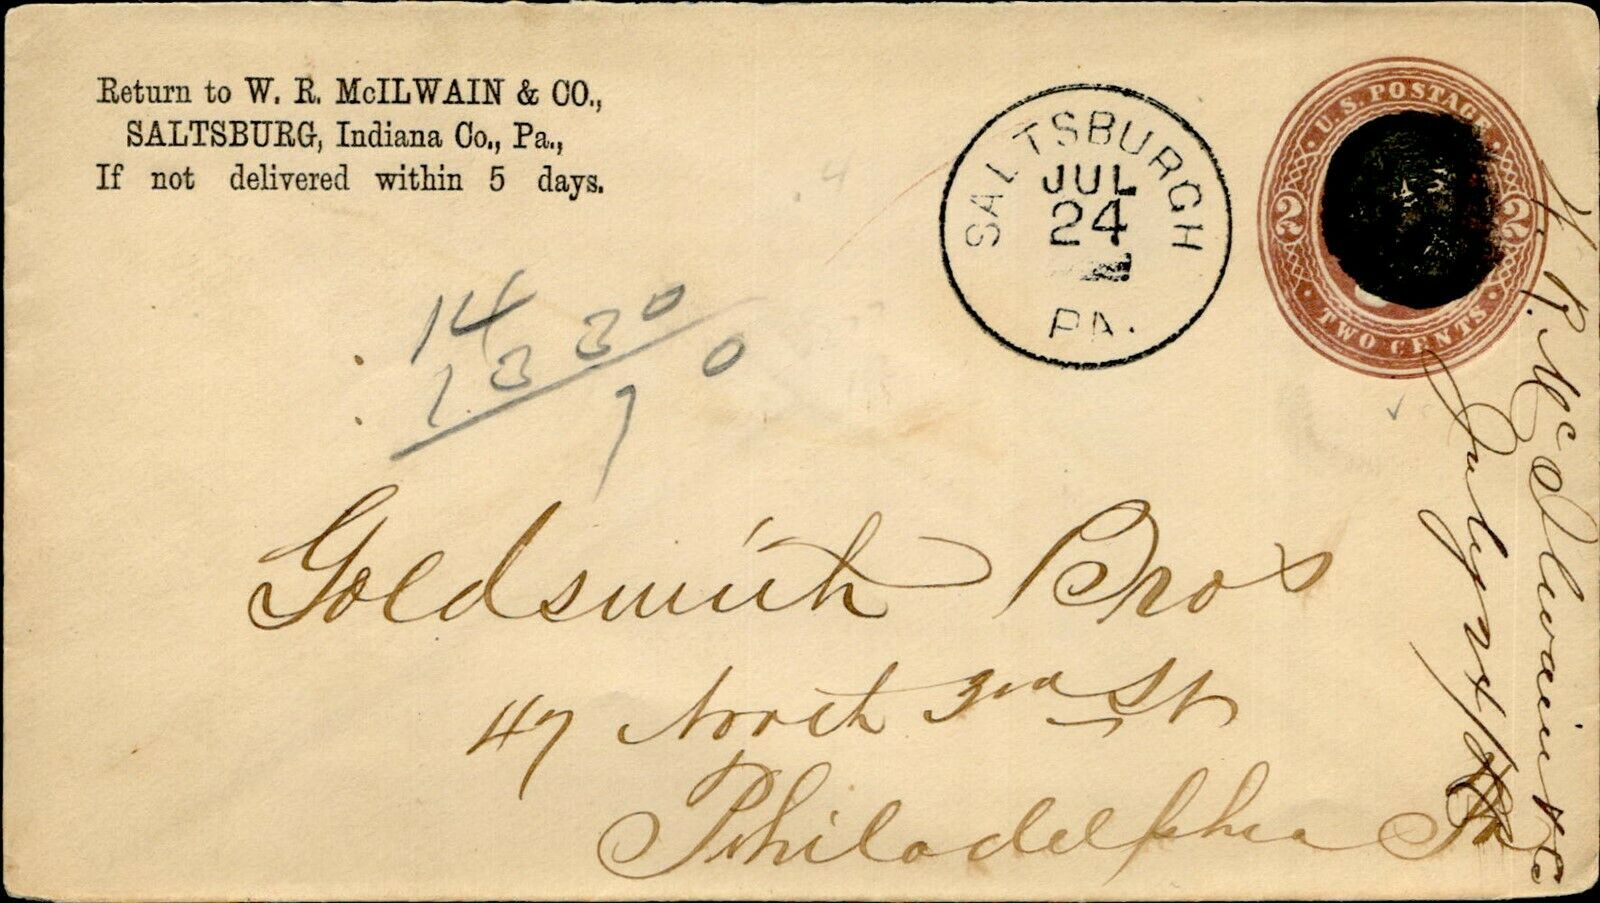 Return to W. R. McILWAIN & CO.,
SALTSBURG, Indiana Co., Pa.,
If not delivered within 5 days.
SALTSBURGH
JUL
24
PA.
U.S. POSTAGE
2 2
TWO CENTS
14 30
13 3
70
Goldsmith Bros
47 North 3rd St
Philadelphia Pa
W. R. McIlwain & Co
July 24/